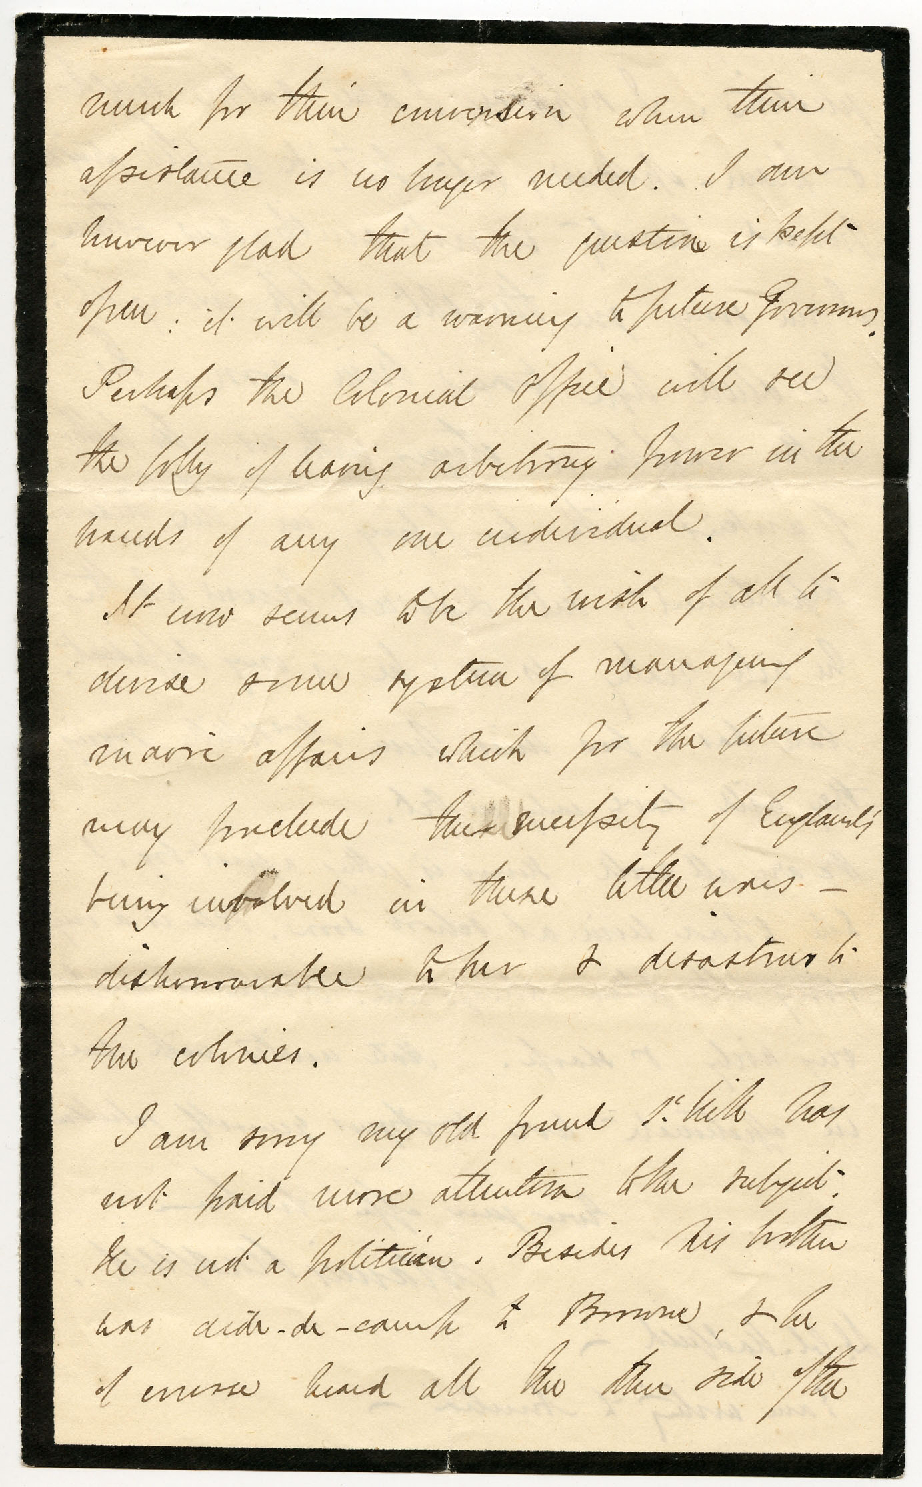 much for their conversion when their
assistance is no longer needed. I am
however glad that the question is kept
open : it will be a warning to future Governors.
Perhaps the Colonial Office will see
the folly of leaving arbitrary power in the
hands of any one individual.
It now seems to be the wish of all to
devise some system of managing
maori affairs which for the future
may preclude the necessity of England's
being involved in these little wars –
dishonourable to her & disastrous to
the colonies.
I am sorry my old friend St. Hill has
not paid more attention to the subject.
He is not a politician. Besides his brother
was aide-de-camp to Browne, & he
of course heard all the other side of the